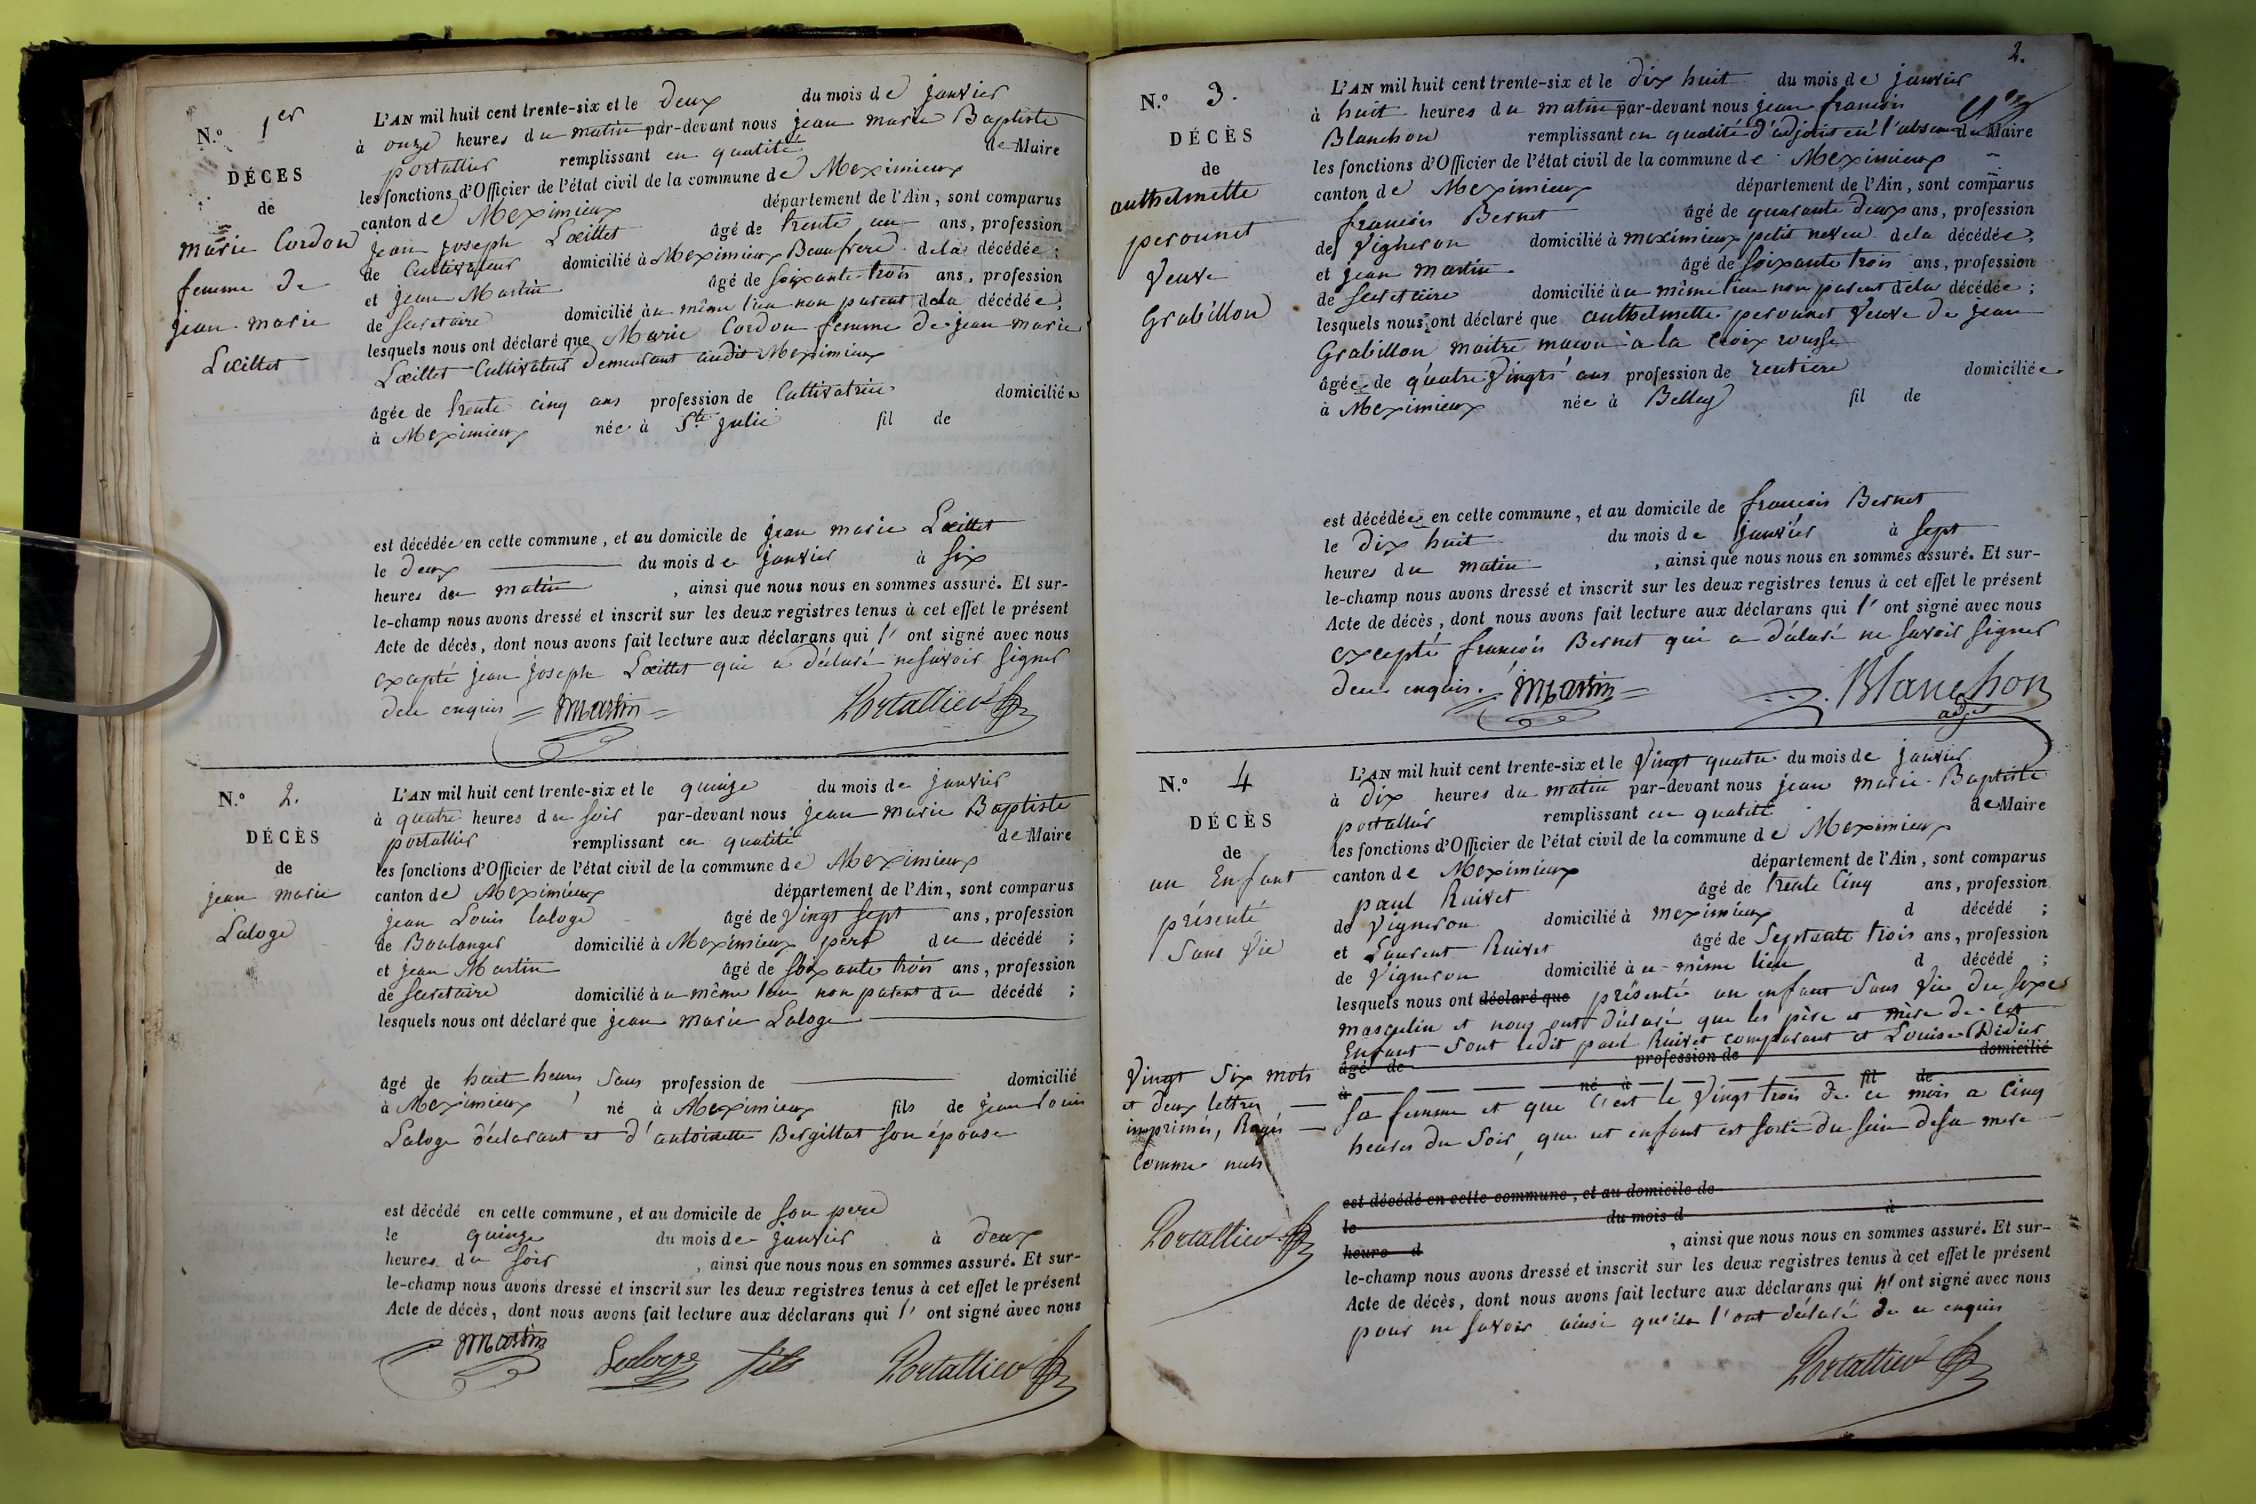 N.º 1er
DÉCES
de
marie Cordon
femme de
jean marie
Lœillet
L'AN mil huit cent trente-six et le deux du mois de janvier
à onze heures du matin par-devant nous jean marie Baptiste
portallier remplissant en qualité de Maire
les fonctions d'Officier de l'état civil de la commune de Meximieux
canton de Meximieux département de l'Ain, sont comparus
jean joseph Lœillet âgé de trente un ans, profession
de Cultivateur domicilié à Meximieux Beaufrere de la décédée ;
et jean Martin âgé de soixante-trois ans, profession
de secretaire domicilié au même lieu non parent de la décédée ;
lesquels nous ont déclaré que Marie Cordon femme de jean marie
Lœillet Cultivateur demeurant audit Meximieux
âgée de trente cinq ans profession de Cultivatrice domiciliée
à Meximieux née à Ste julie fil de
est décédée en cette commune, et au domicile de jean marie Lœillet
le deux du mois de janvier à six
heures du matin , ainsi que nous nous en sommes assuré. Et sur-
le-champ nous avons dressé et inscrit sur les deux registres tenus à cet effet le présent
Acte de décès, dont nous avons fait lecture aux déclarans qui l' ont signé avec nous
excepté jean joseph Lœillet qui a déclaré ne savoir signer
de ce enquis Martin Portallier
N.º 2.
DÉCÈS
de
jean marie
Laloge
L'AN mil huit cent trente-six et le quinze du mois de janvier
à quatre heures du soir par-devant nous jean marie Baptiste
portallier remplissant en qualité de Maire
les fonctions d'Officier de l'état civil de la commune de Meximieux
canton de Meximieux département de l'Ain, sont comparus
jean Louis laloge âgé de vingt sept ans, profession
de Boulanger domicilié à Meximieux pere du décédé ;
et jean Martin âgé de soixante trois ans, profession
de secretaire domicilié au même lieu non parent du décédé ;
lesquels nous ont déclaré que jean marie Laloge
âgé de huit heures sans profession de domicilié
à Meximieux né à Meximieux fils de jean louis
Laloge déclarant et d'antoinette Bergillat son épouse
est décédé en cette commune, et au domicile de son pere
le quinze du mois de janvier à deux
heures du soir , ainsi que nous nous en sommes assuré. Et sur-
le-champ nous avons dressé et inscrit sur les deux registres tenus à cet effet le présent
Acte de décès, dont nous avons fait lecture aux déclarans qui l' ont signé avec nous
Martin Laloge fils Portallier
2.
N.º 3.
DÉCÈS
de
anthelmette
perounet
veuve
Grabillon
L'AN mil huit cent trente-six et le dix huit du mois de janvier
à huit heures du matin par-devant nous jean francois
Blanchon remplissant en qualité d'adjoint en l'absence du Maire
les fonctions d'Officier de l'état civil de la commune de Meximieux
canton de Meximieux département de l'Ain, sont comparus
francois Bernet âgé de quarante deux ans, profession
de Vigneron domicilié à meximieux petit neveu de la décédée ;
et jean martin âgé de soixante trois ans, profession
de secretaire domicilié au même lieu non parent de la décédée ;
lesquels nous ont déclaré que anthelmette perounet veuve de jean
Grabillon maitre macon à la croix rousse
âgée de quatre vingts ans profession de rentiere domiciliée
à Meximieux née à Belley fil de
est décédée en cette commune, et au domicile de francois Bernet
le dix huit du mois de janvier à sept
heures du matin , ainsi que nous nous en sommes assuré. Et sur-
le-champ nous avons dressé et inscrit sur les deux registres tenus à cet effet le présent
Acte de décès, dont nous avons fait lecture aux déclarans qui l' ont signé avec nous
excepté francois Bernet qui a déclaré ne savoir signer
de ce enquis. Martin Blanchon
adjt
N.º 4
DÉCÈS
de
un Enfant
présenté
sans vie
L'AN mil huit cent trente-six et le vingt quatre du mois de janvier
à dix heures du matin par-devant nous jean marie Baptiste
portallier remplissant en qualité de Maire
les fonctions d'Officier de l'état civil de la commune de Meximieux
canton de Meximieux département de l'Ain, sont comparus
paul Ruivet âgé de trente cinq ans, profession
de Vigneron domicilié à meximieux d décédé ;
et Laurent Ruivet âgé de septante trois ans, profession
de Vigneron domicilié au même lieu d décédé ;
lesquels nous ont déclaré que présenté un enfant sans vie du sexe
masculin et nous ont déclaré que les père et mère de cet
Enfant sont ledit paul Ruivet comparant et Louise Didier
âgé de profession de domicilié
à né à fil de
sa femme et que c'est le vingt trois de ce mois a cinq
heures du soir, que cet enfant est sorti du sein de sa mere
Vingt six mots
et deux lettres
imprimés, Rayés
comme nuls
Portallier
est décédé en cette commune, et au domicile de
le du mois d à
heure d , ainsi que nous nous en sommes assuré. Et sur-
le-champ nous avons dressé et inscrit sur les deux registres tenus à cet effet le présent
Acte de décès, dont nous avons fait lecture aux déclarans qui n' ont signé avec nous
pour ne savoir ainsi qu'ils l'ont déclaré de ce enquis
Portallier